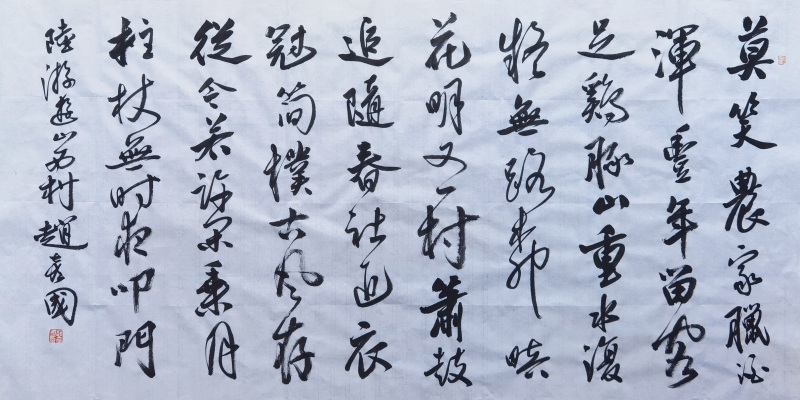 莫笑農家臘酒
渾豐年留客
足鷄豚山重水復
疑無路柳暗
花明又一村簫鼓
追隨春社近衣
冠簡樸古風存
從今若許閑乘月
拄杖無時夜叩門
陸游遊山西村 趙國